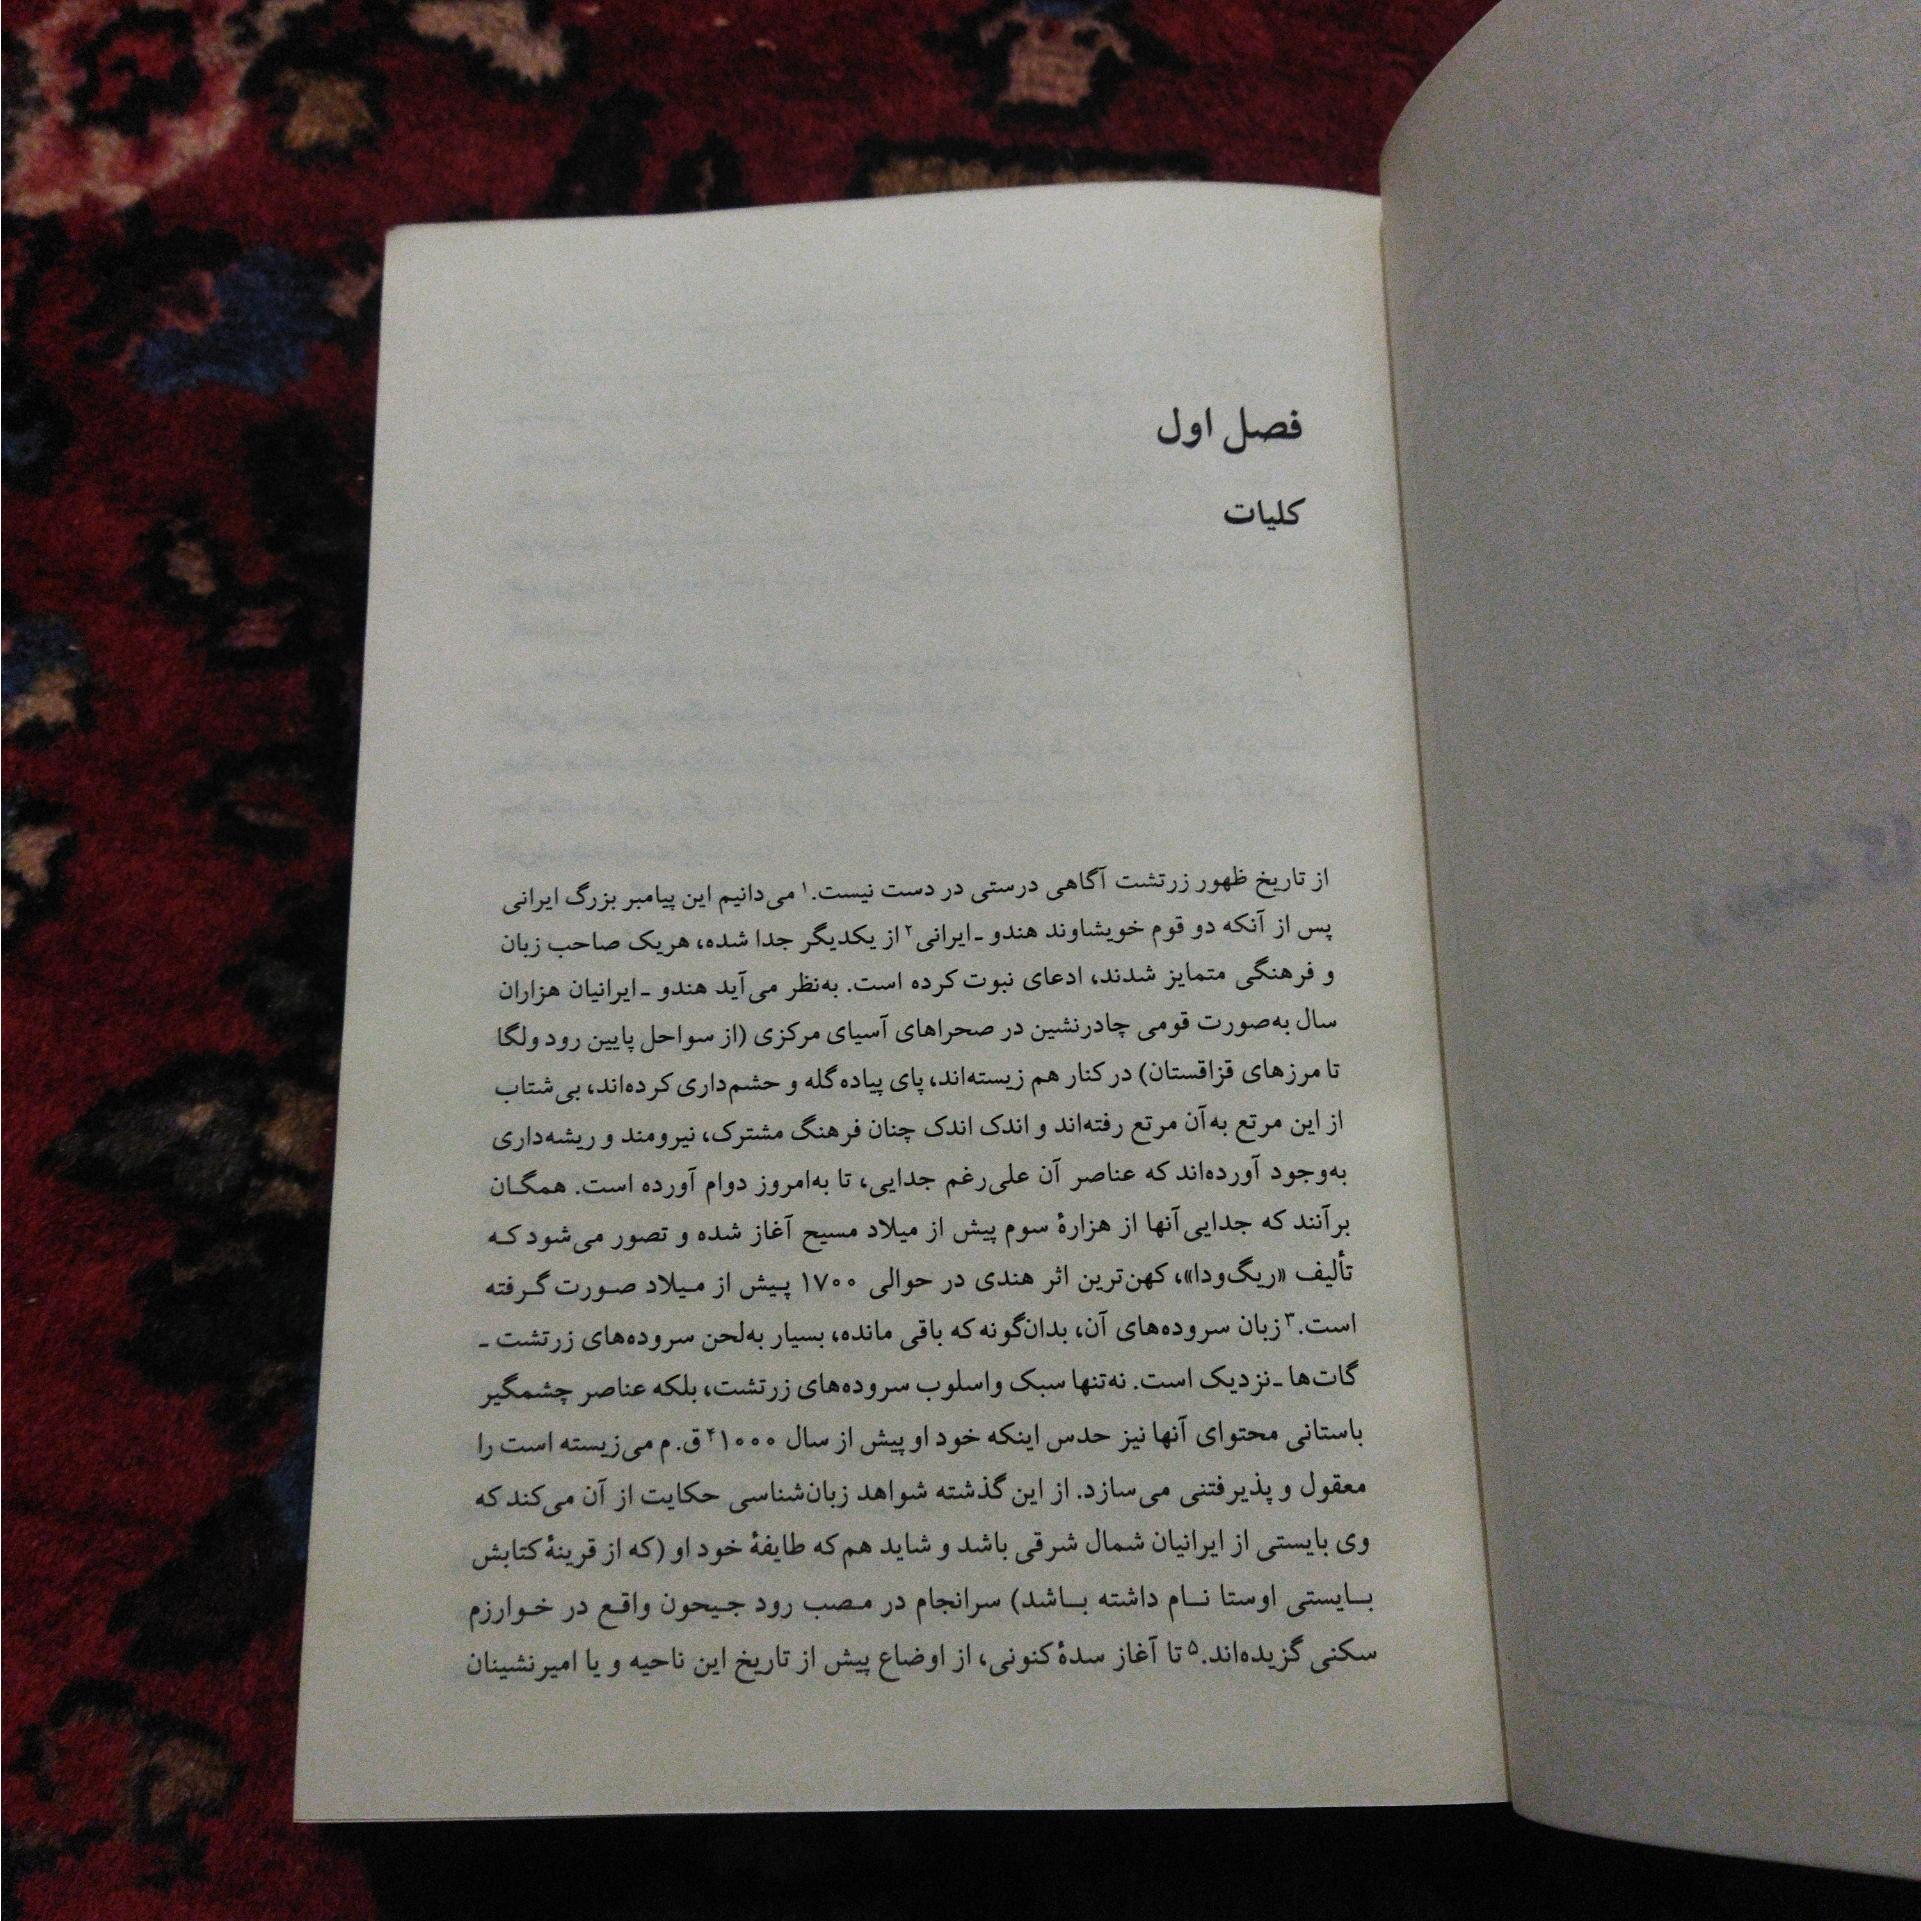 فصل اول
کلیات
از تاریخ ظهور زرتشت آگاهی درستی در دست نیست.۱ می‌دانیم این پیامبر بزرگ ایرانی
پس از آنکه دو قوم خویشاوند هندو ـ ایرانی۲ از یکدیگر جدا شده، هریک صاحب زبان
و فرهنگی متمایز شدند، ادعای نبوت کرده است. به‌نظر می‌آید هندو ـ ایرانیان هزاران
سال به‌صورت قومی چادرنشین در صحراهای آسیای مرکزی (از سواحل پایین رود ولگا
تا مرزهای قزاقستان) در کنار هم زیسته‌اند، پای پیاده گله و حشم‌داری کرده‌اند، بی‌شتاب
از این مرتع به‌آن مرتع رفته‌اند و اندک اندک چنان فرهنگ مشترک، نیرومند و ریشه‌داری
به‌وجود آورده‌اند که عناصر آن علی‌رغم جدایی، تا به‌امروز دوام آورده است. همگان
برآنند که جدایی آنها از هزارهٔ سوم پیش از میلاد مسیح آغاز شده و تصور می‌شود که
تألیف «ریگ‌ودا»، کهن‌ترین اثر هندی در حوالی ۱۷۰۰ پیش از میلاد صورت گرفته
است.۳ زبان سروده‌های آن، بدان‌گونه که باقی مانده، بسیار به‌لحن سروده‌های زرتشت ـ
گات‌ها ـ نزدیک است. نه‌تنها سبک و اسلوب سروده‌های زرتشت، بلکه عناصر چشمگیر
باستانی محتوای آنها نیز حدس اینکه خود او پیش از سال ۱۰۰۰۴ ق. م می‌زیسته است را
معقول و پذیرفتنی می‌سازد. از این گذشته شواهد زبان‌شناسی حکایت از آن می‌کند که
وی بایستی از ایرانیان شمال شرقی باشد و شاید هم که طایفهٔ خود او (که از قرینهٔ کتابش
بایستی اوستا نام داشته باشد) سرانجام در مصب رود جیحون واقع در خوارزم
سکنی گزیده‌اند.۵ تا آغاز سدهٔ کنونی، از اوضاع پیش از تاریخ این ناحیه و یا امیرنشینان